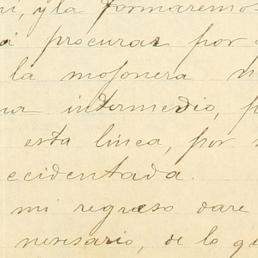 y la formaremos
procurar por
la mojonera
intermedio,
esta línea, por
ccidentada.
mi regreso daré
nesesario, de lo qe